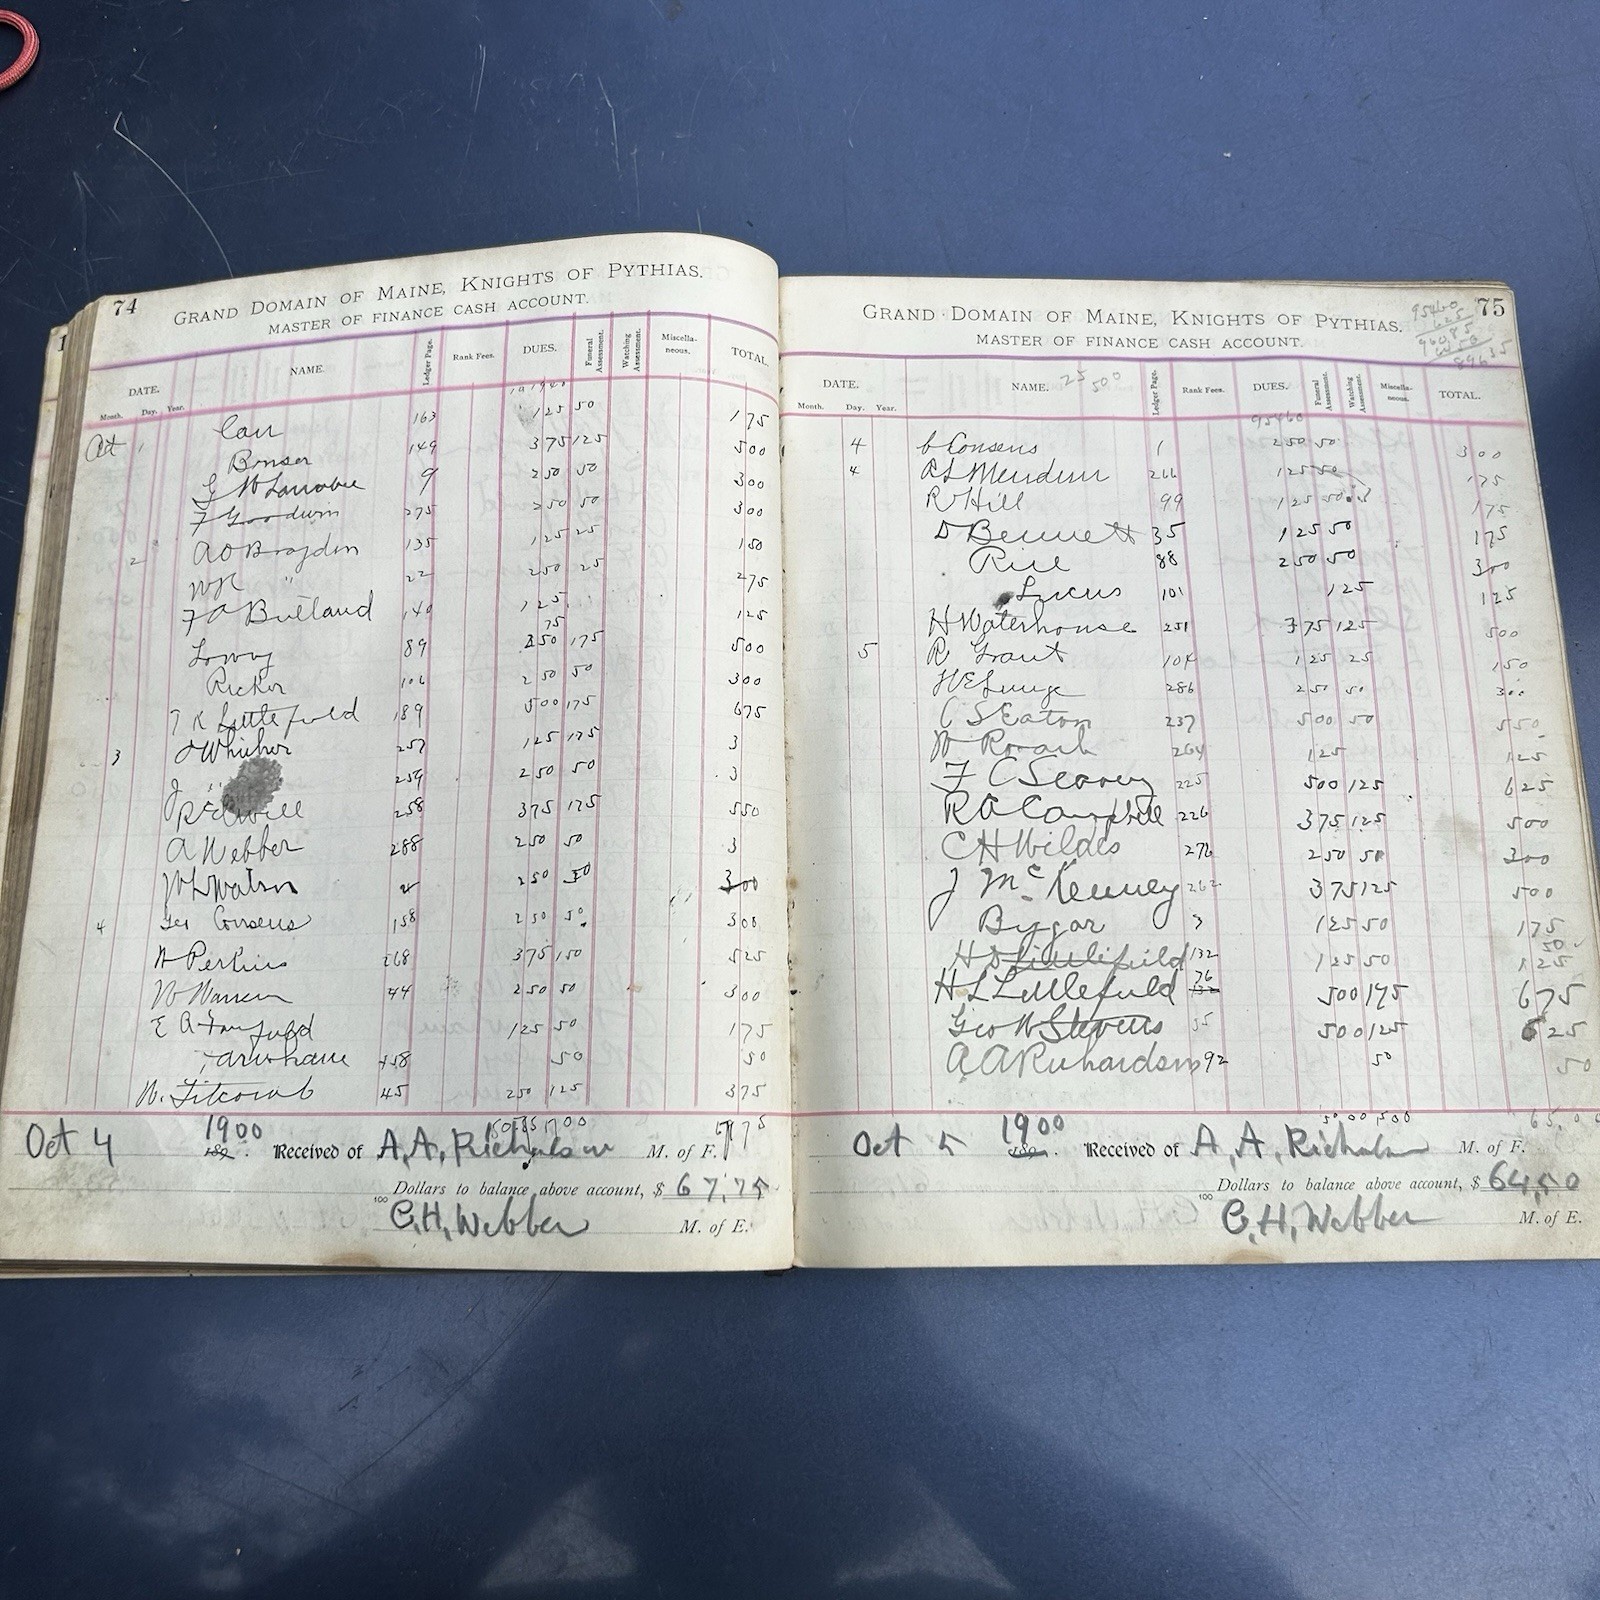 74
GRAND DOMAIN OF MAINE, KNIGHTS OF PYTHIAS.
MASTER OF FINANCE CASH ACCOUNT.
DATE. NAME. Ledger Page. Rank Fees. DUES. Funeral Assessment. Watching Assessment. Miscella-neous. TOTAL.
Month. Day. Year.
Oct 1 Carr 163 125 50 175
Bonser 149 375 125 500
9 250 50 300
F Goodwin 275 250 50 300
2 A O Bragdon 135 125 25 150
" 22 250 25 275
140 125 125
89 175 500
Ricker 106 250 50 300
Littlefield 189 500 175 675
3 257 125 175 3
" 259 250 50 3
258 375 175 550
A Webber 288 250 50 3
W L Watson 250 50 300
4 Geo Cousens 158 250 50 300
W Perkins 268 375 150 525
W Warren 44 250 50 300
E A Fairfield 125 50 175
50 50
W. Titcomb 45 250 125 375
Oct 4 1900 Received of A. A. Richardson M. of F.
100 Dollars to balance above account, $ 67,75
C. H. Webber M. of E.
75
GRAND DOMAIN OF MAINE, KNIGHTS OF PYTHIAS.
MASTER OF FINANCE CASH ACCOUNT.
25 500
DATE. NAME. Ledger Page. Rank Fees. DUES. Funeral Assessment. Watching Assessment. Miscella-neous. TOTAL.
Month. Day. Year.
95460
4 C Cousens 1 250 50 300
4 Mendum 266 125 50 175
R Hill 99 125 50 175
D Bennett 35 125 50 175
Rice 88 250 50 300
Lucus 101 125 125
H Waterhouse 251 375 125 500
5 R Grant 104 125 25 150
286 250 50 300
C S Eaton 237 500 50 550
264 125 125
F C Seavey 225 500 125 625
R A Campbell 226 375 125 500
C H Wildes 276 250 50 300
J McKenney 262 375 125 500
Bygar 3 125 50 175
H S Littlefield 132 125 50 125
H L Littlefield 76 500 175 675
Geo W Stevens 55 500 125 625
A A Richardson 92 50 50
Oct 5 1900 Received of A. A. Richardson M. of F.
100 Dollars to balance above account, $ 64,50
C. H. Webber M. of E.